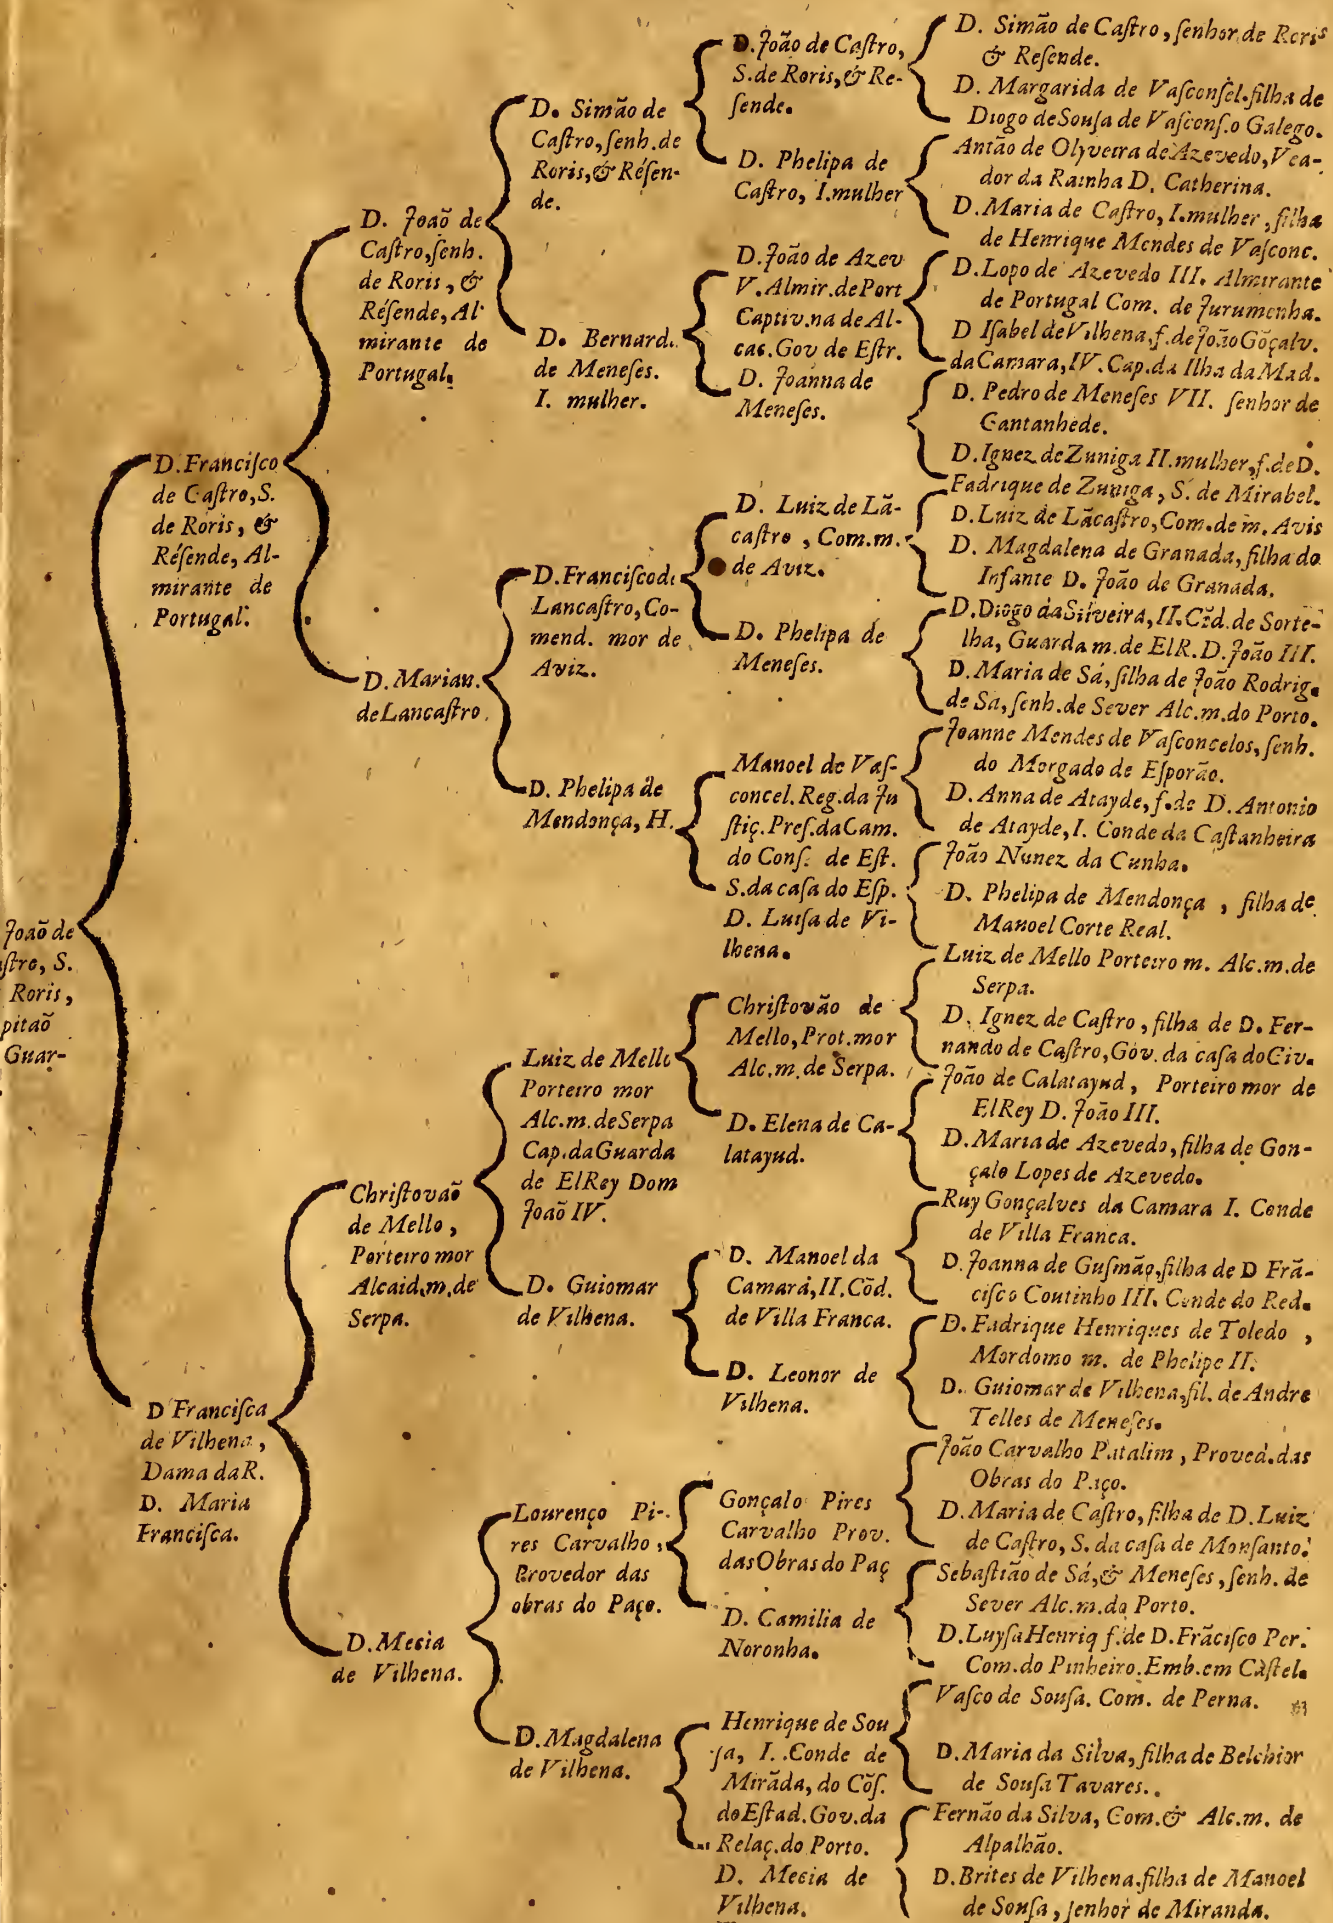 João de
aſtro, S.
Roris,
pitaõ
Guar-
D.Franciſco
de Caſtro,S.
de Roris, &
Réſende, Al-
mirante de
Portugal.
D Franciſca
de Vilhena,
Dama da R.
D. Maria
Franciſca.
D. Joaõ de
Caſtro,ſenh.
de Roris, &
Réſende, Al-
mirante de
Portugal.
D. Marian.
de Lancaſtro.
Chriſtovaõ
de Mello,
Porteiro mor
Alcaid.m.de
Serpa.
D.Mecia
de Vilhena.
D. Simão de
Caſtro,ſenh.de
Roris,& Réſen-
de.
D. Bernard.
de Meneſes.
I. mulher.
D.Franciſco de
Lancaſtro, Co-
mend. mor de
Aviz.
D. Phelipa de
Mendonça, H.
Luiz de Mello
Porteiro mor
Alc.m.de Serpa
Cap.da Guarda
de ElRey Dom
Joaõ IV.
D. Guiomar
de Vilhena.
Lourenço Pi-
res Carvalho,
Provedor das
obras do Paço.
D.Magdalena
de Vilhena.
D.João de Caſtro,
S.de Roris,& Re-
ſende.
D. Phelipa de
Caſtro, I.mulher
D.João de Azev
V.Almir.de Port
Captiv.na de Al-
cac.Gov de Eſtr.
D. Joanna de
Meneſes.
D. Luiz de Lã-
caſtro, Com.m.
de Aviz.
D. Phelipa de
Meneſes.
Manoel de Vaſ-
concel.Reg.da Ju
ſtiç.Preſ.da Cam.
do Conſ. de Eſt.
S.da caſa do Eſp.
D. Luiſa de Vi-
lhena.
Chriſtovão de
Mello, Prot.mor
Alc.m.de Serpa.
D. Elena de Ca-
latayud.
D. Manoel da
Camara, II.Cõd.
de Villa Franca.
D. Leonor de
Vilhena.
Gonçalo Pires
Carvalho Prov.
das Obras do Paç
D. Camilia de
Noronha.
Henrique de Sou
ſa, I. Conde de
Mirãda, do Cõſ.
do Eſtad.Gov.da
Relaç.do Porto.
D. Mecia de
Vilhena.
D. Simão de Caſtro, ſenhor de Roris
& Reſende.
D. Margarida de Vaſconſel.filha de
Diogo de Souſa de Vaſconſ.o Galego.
Antão de Olyveira de Azevedo, Vea-
dor da Rainha D. Catherina.
D.Maria de Caſtro, I.mulher, filha
de Henrique Mendes de Vaſconc.
D.Lopo de Azevedo III. Almirante
de Portugal Com. de Jurumenha.
D Iſabel de Vilhena, f.de João Gõçalv.
da Camara, IV.Cap.da Ilha da Mad.
D. Pedro de Meneſes VII. ſenhor de
Cantanhede.
D.Ignez de Zuniga II.mulher, f.de D.
Fadrique de Zuniga, S. de Mirabel.
D.Luiz de Lãcaſtro, Com.de m. Avis
D. Magdalena de Granada, filha do
Infante D. João de Granada.
D.Diogo da Silveira, II.Cõd.de Sorte-
lha, Guarda m.de ElR.D.João III.
D.Maria de Sá, filha de João Rodrig.
de Sa, ſenh.de Sever Alc.m.do Porto.
Joanne Mendes de Vaſconcelos, ſenh.
do Morgado de Eſporão.
D.Anna de Atayde, f.de D. Antonio
de Atayde, I. Conde da Caſtanheira
João Nunez da Cunha.
D. Phelipa de Mendonça, filha de
Manoel Corte Real.
Luiz de Mello Porteiro m. Alc.m.de
Serpa.
D. Ignez de Caſtro, filha de D. Fer-
nando de Caſtro, Gov. da caſa do Civ.
João de Calatayud, Porteiro mor de
ElRey D. João III.
D.Maria de Azevedo, filha de Gon-
çalo Lopes de Azevedo.
Ruy Gonçalves da Camara I. Conde
de Villa Franca.
D.Joanna de Guſmão, filha de D Frã-
ciſco Coutinho III. Conde do Red.
D.Fadrique Henriques de Toledo,
Mordomo m. de Phelipe II.
D. Guiomar de Vilhena, fil. de Andre
Telles de Meneſes.
João Carvalho Patalim, Provea.das
Obras do Paço.
D.Maria de Caſtro, filha de D.Luiz
de Caſtro, S. da caſa de Monſanto.
Sebaſtião de Sá,& Meneſes, ſenh. de
Sever Alc.m.do Porto.
D.Luyſa Henriq f.de D.Frãciſco Per.
Com.do Pinheiro.Emb.em Caſtel.
Vaſco de Souſa. Com. de Perna.
D.Maria da Silva, filha de Belchior
de Souſa Tavares.
Fernão da Silva, Com.& Alc.m. de
Alpalhão.
D.Brites de Vilhena.filha de Manoel
de Souſa, ſenhor de Miranda.